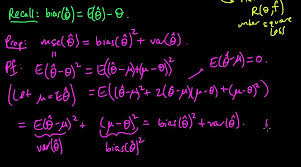 Recall: bias(θ̂) = E(θ̂) - θ.
the
R(θ, f)
under square
loss
Prop: mse(θ̂) = bias(θ̂)² + var(θ̂).
Pf: E(θ̂-θ)² = E(θ̂-μ+μ-θ)²
E(θ̂-μ)=0.
(Let μ=Eθ̂) = E((θ̂-μ)² + 2(θ̂-μ)(μ-θ) + (μ-θ)²)
= E(θ̂-μ)² + (μ-θ)² = bias(θ̂)² + var(θ̂).
var(θ̂) bias(θ̂)²